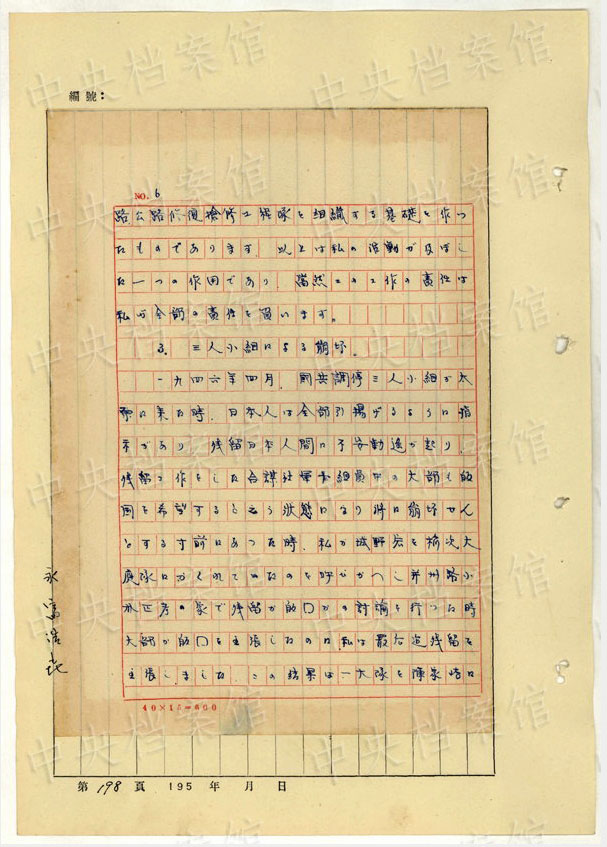 編號：
NO. 6
路公路修復搶修工程隊を組織する基礎を作つ
たものであります．以上は私の活動が及ぼし
た一つの作用であり，當然この工作の責任は
私が全部の責任を負います。
3. 三人小組による崩坏．
一九四六年四月．國共調停三人小組が太
原に来た時．日本人は全部引揚げるように指
示があり．残留日本人間に不安動遥が起り．
残留工作をした合謀社軍事組員中の大部も帰
國を希望するという状態になり将に崩坏せん
とする寸前にあった時．私が城野宏を楡次大
隊にかくれていたのを呼びかへし并州路小
の家で残留か帰口かの討論を行つた時
大部が帰口を主張したのに私は最后迠残留を
主張しました．この結果は一大隊を陳泉峙に
40×15=600
永富浩
第 198 頁 195 年 月 日
中央档案馆